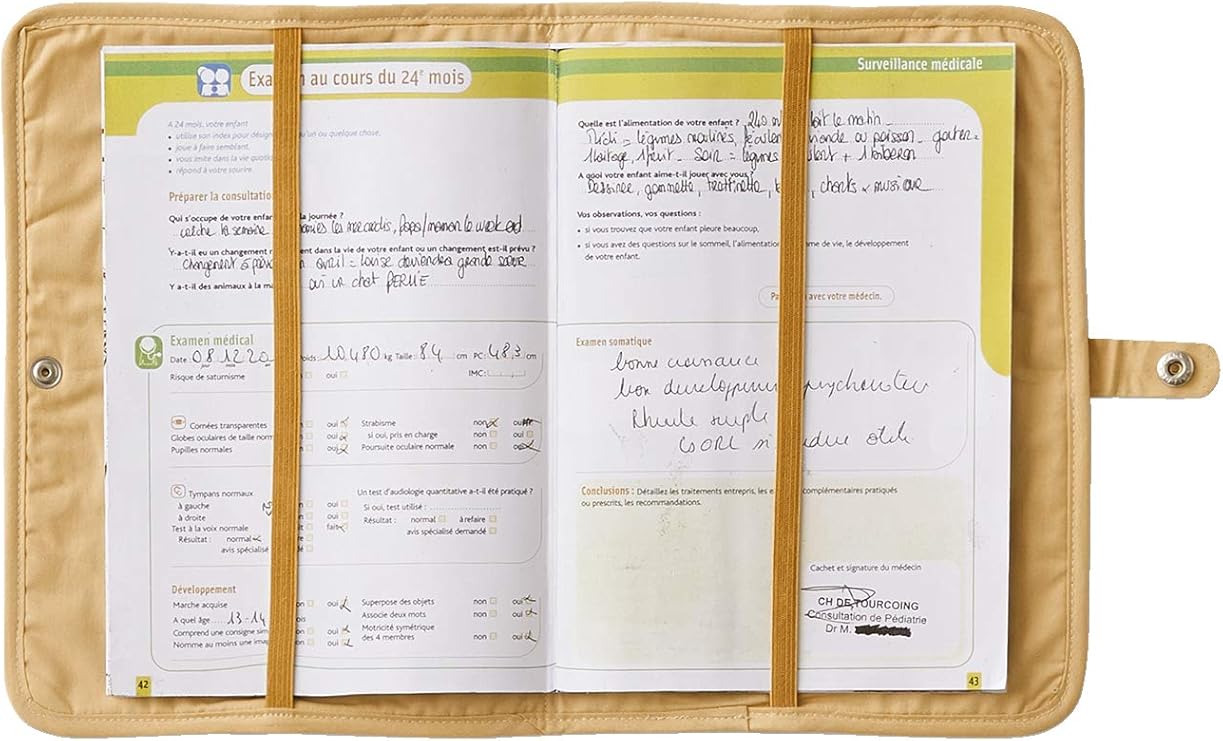 Examen au cours du 24e mois
A 24 mois, votre enfant
• utilise son index pour désign qu'un ou quelque chose,
• joue à faire semblant,
• vous imite dans la vie quoti
• répond à votre sourire.
Préparer la consultation
Qui s'occupe de votre enfan la journée ?
crèche la semaine les mercredis, Papa/maman le week end
Y-a-t-il eu un changement r ent dans la vie de votre enfant ou un changement est-il prévu ?
Changement à prév avril = Louise deviendra grande sœur
Y a-t-il des animaux à la ma
oui un chat PERLE
Examen médical
Date 08 12 20 Poids : 10,480 kg Taille : 84 cm PC : 48,3 cm
jour mois
Risque de saturnisme oui IMC :
Cornées transparentes oui Strabisme non oui
Globes oculaires de taille norm oui si oui, pris en charge non oui
Pupilles normales oui Poursuite oculaire normale non oui
Tympans normaux Un test d'audiologie quantitative a-t-il été pratiqué ?
à gauche oui Si oui, test utilisé :
à droite oui Résultat : normal à refaire
Test à la voix normale fait avis spécialisé demandé
Résultat : normal
avis spécialisé
Développement
Marche acquise on oui Superpose des objets non oui
A quel âge 13-14 ois Associe deux mots non oui
Comprend une consigne sim on oui Motricité symétrique
Nomme au moins une imag on oui des 4 membres non oui
42
Surveillance médicale
Quelle est l'alimentation de votre enfant ? 240 lait le matin
Midi = légumes moulinés, viande ou poisson goûter =
1 laitage, 1 fruit - Soir = légumes + 1 biberon
A quoi votre enfant aime-t-il jouer avec vous ?
Dessiner, gommette, trottinette, chants & musique
Vos observations, vos questions :
• si vous trouvez que votre enfant pleure beaucoup,
• si vous avez des questions sur le sommeil, l'alimentatio me de vie, le développement
de votre enfant.
Pa avec votre médecin.
Examen somatique
bonne croissance
bon développement psychomoteur
Rhinite simple
CsORL si otite
Conclusions : Détaillez les traitements entrepris, les e complémentaires pratiqués
ou prescrits, les recommandations.
Cachet et signature du médecin
CH DE TOURCOING
Consultation de Pédiatrie
Dr M.
43